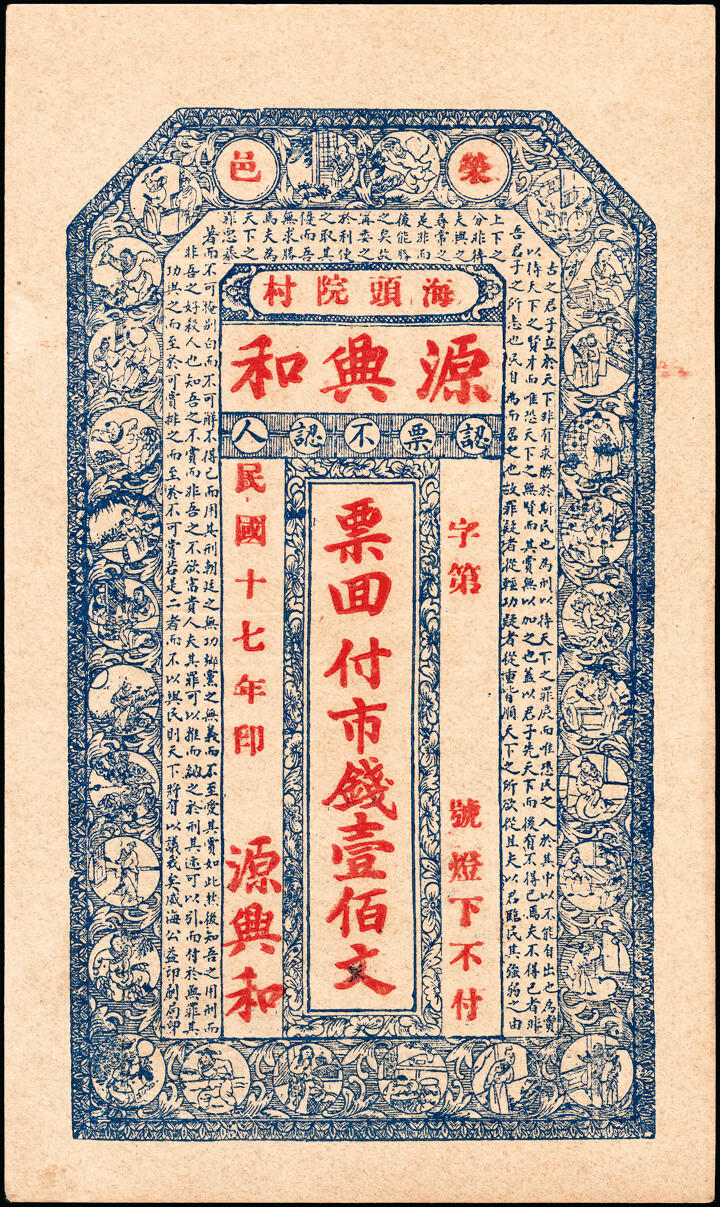 榮邑
海頭院村
源興和
認票不認人
字第
號燈下不付
票回付市錢壹佰文
民國十七年印
源興和
古之君子立於天下非有求勝於斯民也為刑以待天下之罪戾而唯恐民之入於其中以不能自出也為賞
以待天下之賢才而唯恐天下之無賢而其賞無以加之也蓋以君子先天下而後有不得已焉夫不得已者非
吾君子之所志也民自為而召之也故罪疑者從輕功疑者從重皆順天下之所欲從且夫以君臨民其強弱之由
上下之
分非待
夫與之
尋常之
是非而
後能勝
之矣故
委之
於利使
之取其
而吾
無求勝
焉夫為
天下之
著而不可掩別白而不可解不得已而用其刑朝廷之無功鄉黨之無義而不至愛其賞如此然後知吾之用刑而
非吾之好殺人也知吾之不賞而非吾之不欲富貴人夫其罪可以推而納之於刑其迹可以引而付於無罪其
功與之而至於可賞排之而至於不可賞若是二者而不以與民則天下將有以議我矣威海公益印刷局印